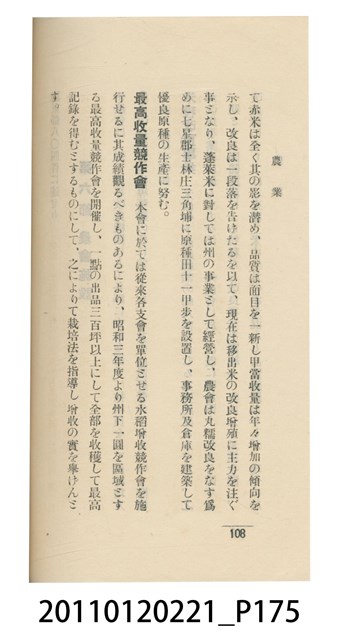 農業
て赤米は全く其の影を潛め、品質は面目を一新し甲當收量は年々增加の傾向を
示し、改良は一段落を告げたるを以て、現在は移出米の改良增殖に主力を注ぐ
事となり、蓬萊米に對しては州の事業として經營し、農會は丸糯改良をなす爲
めに七星郡士林庄三角埔に原種田十一甲步を設置し、事務所及倉庫を建築して
優良原種の生產に努む。
最高收量競作會 本會に於ては從來各支會を單位とせる水稻增收競作會を施
行せるに其成績觀るべきものあるにより、昭和三年度より州下一圓を區域とす
る最高收量競作會を開催し、一點の出品三百坪以上にして全部を收穫して最高
記錄を得むとするものにして、之によりて栽培法を指導し增收の實を擧げんと
す。
108
20110120221_P175